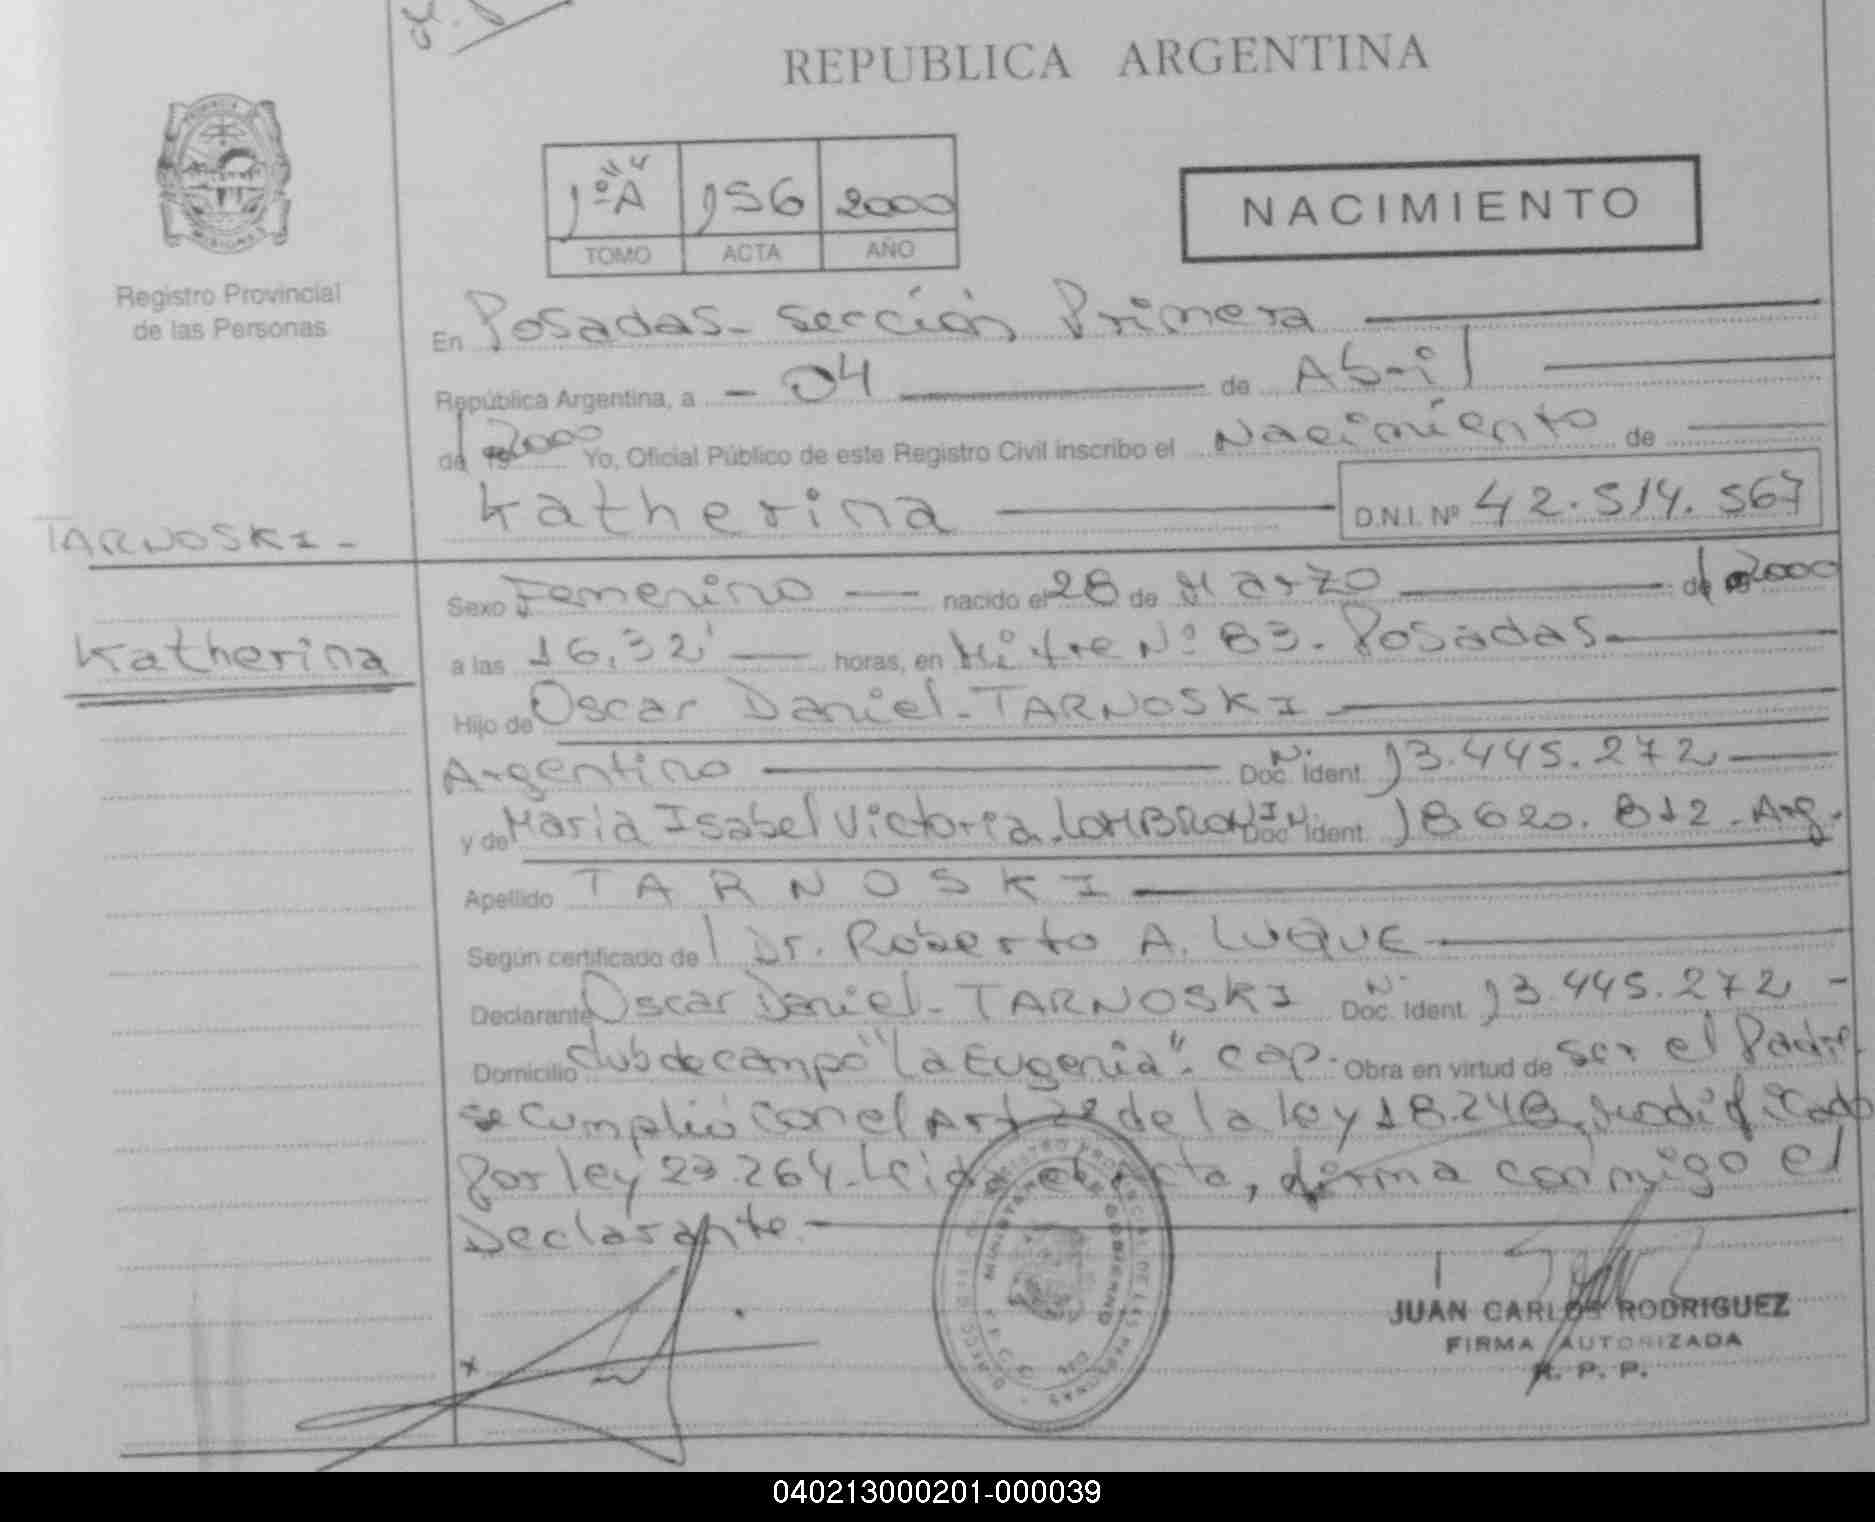 REPUBLICA ARGENTINA
1º "A" 156 2000
TOMO ACTA AÑO
NACIMIENTO
MISIONES
Registro Provincial
de las Personas
En Posadas - sección Primera
República Argentina, a - 04 de Abril
de 2000 Yo, Oficial Público de este Registro Civil inscribo el Nacimiento de
Katherina D.N.I. Nº 42.514.567
TARNOSKI -
Katherina
Sexo Femenino nacido el 28 de Marzo de 2000
a las 16,32' horas, en Mitre Nº 83. Posadas
Hijo de Oscar Daniel - TARNOSKI
Argentino Doc. N. Ident. 13.445.272
y de Maria Isabel Victoria. LOMBRONI Doc. N. Ident. 18620.812 - Arg.
Apellido TARNOSKI
Según certificado de Dr. Roberto A. LUQUE
Declarante Oscar Daniel - TARNOSKI Doc. N. Ident. 13.445.272 -
Domicilio Club de campo "La Eugenia". Cap. Obra en virtud de ser el Padre.
se cumplió con el Art 2º de la ley 18.248, modificado
por ley 23.264. Leida el Acta, firma conmigo el
Declarante. -
REGISTRO PROVINCIAL DE LAS PERSONAS
MINISTERIO DE GOBIERNO
JUAN CARLOS RODRIGUEZ
FIRMA AUTORIZADA
R. P. P.
040213000201-000039